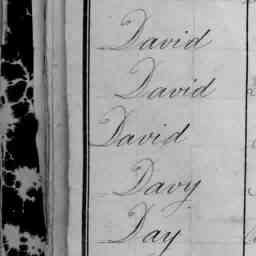 David
David
David
Davy
Day